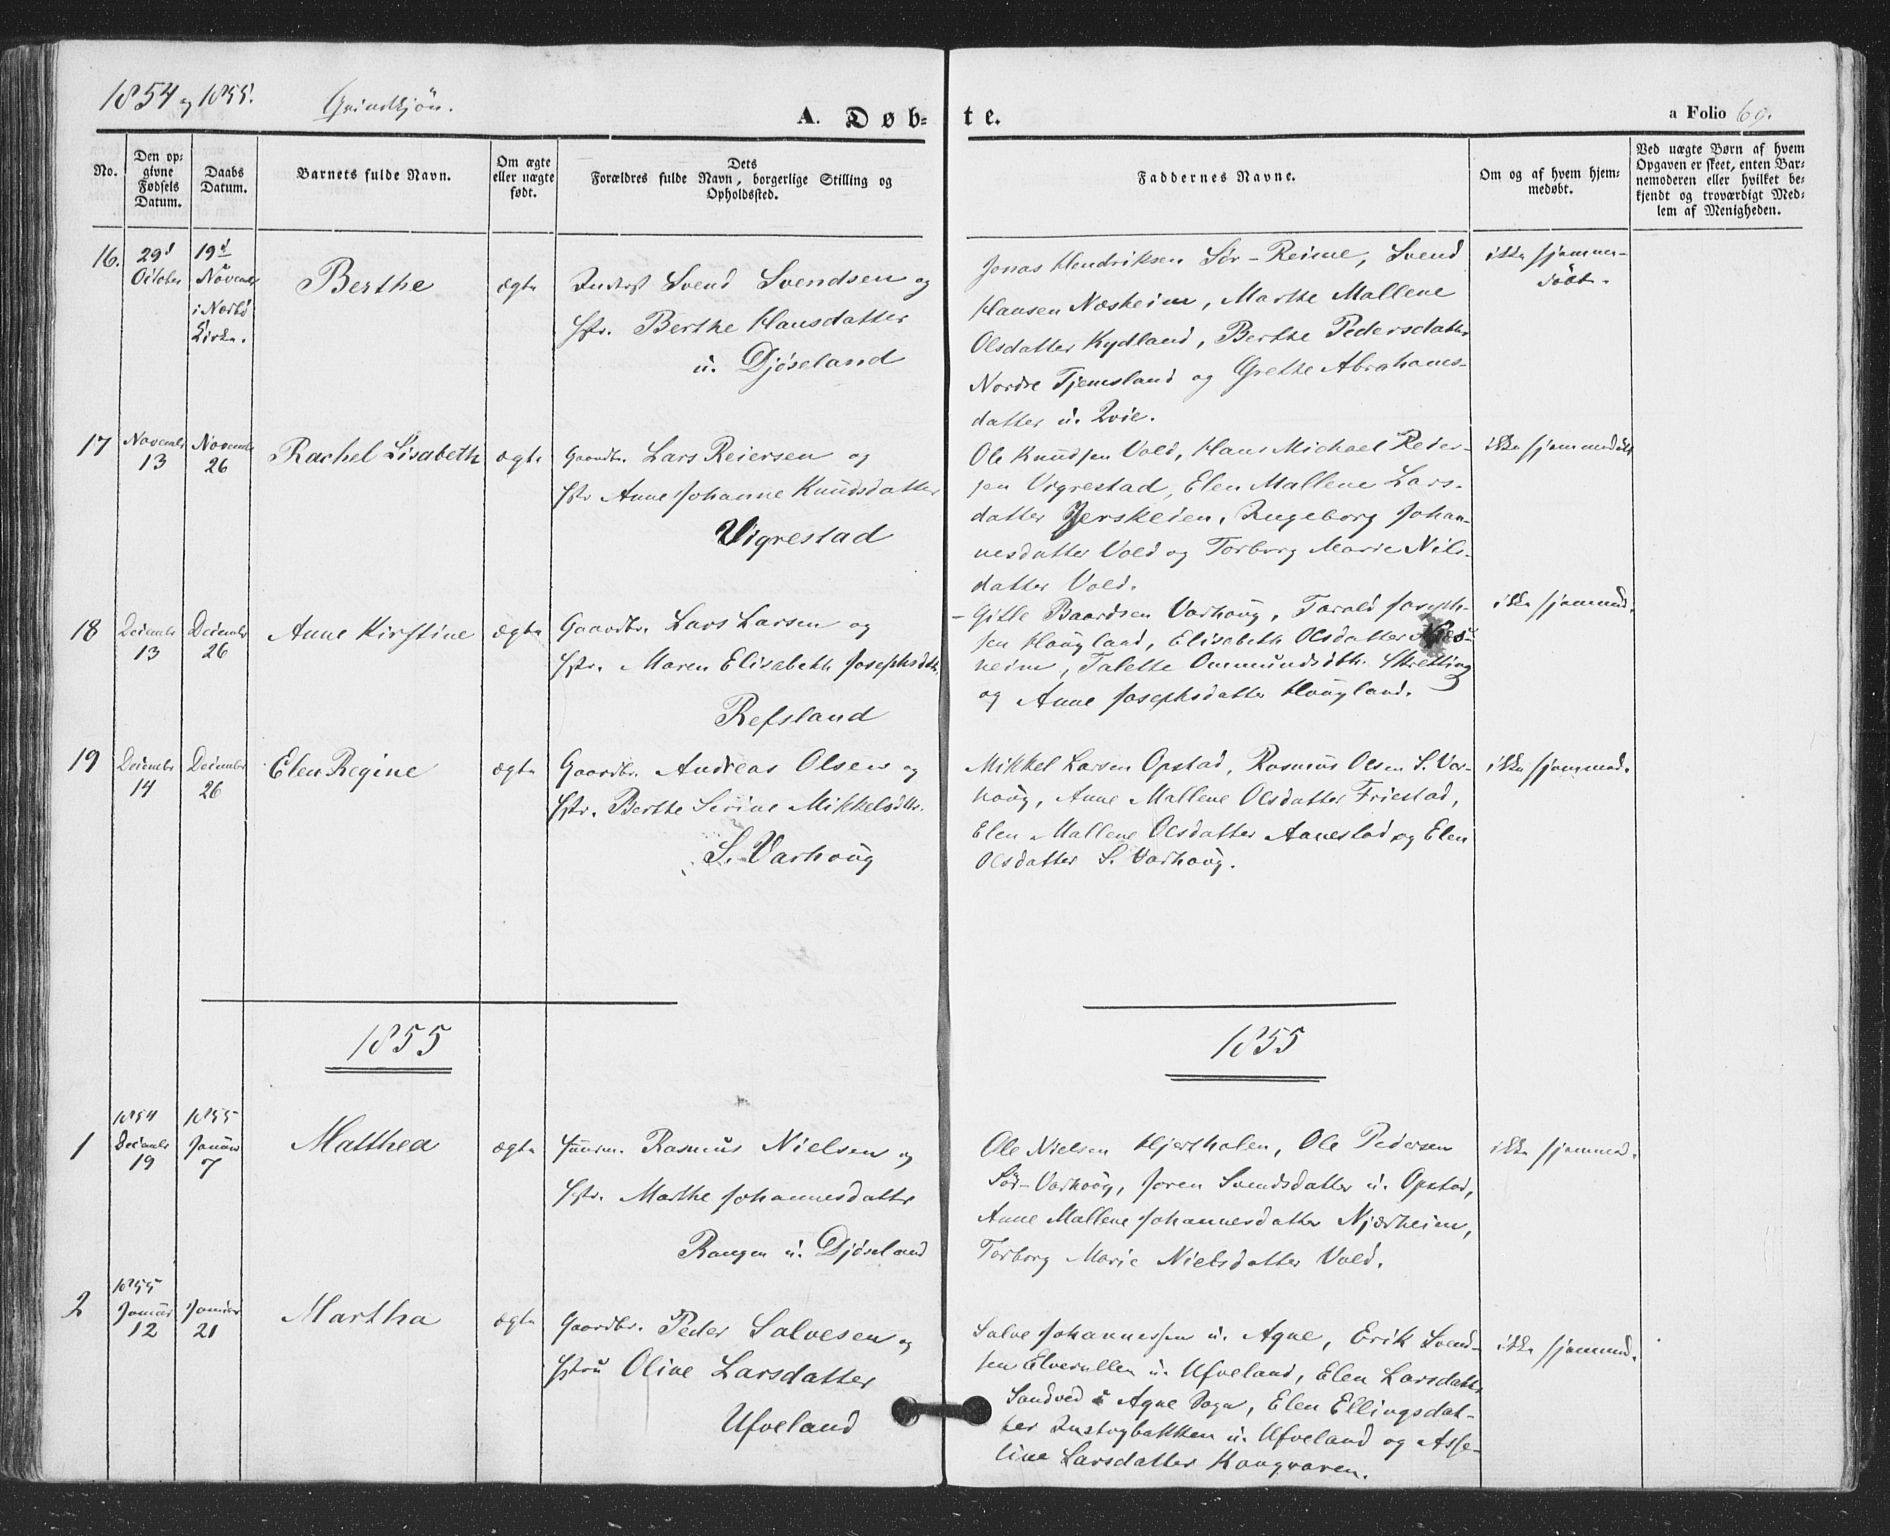 1854 og 1855. Grindkjön.
A. Døb- te. a Folio 69.
No.
Den opgivne Fødsels Datum.
Daabs Datum.
Barnets fulde Navn.
Om ægte eller uægte født.
Dets Forældres fulde Navn, borgerlige Stilling og Opholdssted.
Faddernes Navne.
Om og af hvem hjemmedøbt.
Ved uægte Børn af hvem Opgaven er skeet, enten Barnemoderen eller hvilket bekjendt og troværdigt Medlem af Menigheden.
16.
29d October
19d Novembr i Nærbø Kirke.
Berthe
ægte
Inderst Svend Svendsen og
Hstr. Berthe Hansdatter
u. Djøseland
Jonas Hendriksen Sör-Reime, Svend
Hansen Næsheim, Marthe Mallene
Olsdatter Kydland, Berthe Pedersdatter
Nordre Tjemsland og Grethe Abrahams-
datter u. Qvie.
ikke hjemme-
döbt.
17
Novembr 13
Novembr 26
Rachel Lisabeth
ægte
Gaardbr. Lars Reiersen og
Hstr Anne Johanne Knudsdatter
Vigrestad
Ole Knudsen Vold, Hans Michael Reier-
sen Vigrestad, Elen Mallene Lars-
datter Jerskeien, Ingeborg Johan-
nesdatter Vold og Torborg Marie Nils-
datter Vold.
ikke hjemmedöbt
18
Decembr 13
Decembr 26
Anne Kirstine
ægte
Gaardbr. Lars Larsen og
Hstr. Maren Elisabeth Josephsdtr.
Refsland
Gitle Baardsen Varhoug, Tarald Joseph-
sen Hougland, Elisabeth Olsdatter Næs-
heim, Talette Ommundsdtr. Skretting
og Anne Josephsdatter Hougland.
ikke hjemmed.
19
Decembr 14
Decembr 26
Elen Regine
ægte
Gaardbr. Andreas Olsen og
Hstr. Berthe Serine Mikkelsdtr.
S. Varhoug
Mikkel Larsen Opstad, Rasmus Olsen S. Var-
houg, Anne Mallene Olsdatter Friestad,
Elen Mallene Olsdatter Aanestad og Elen
Olsdatter S. Varhoug.
ikke hjemmed.
1855
1855
1
1854 Decembr 19
1855 Januar 7
Matthea
ægte
Huusm. Rasmus Nielsen og
Hstr. Marthe Johannesdatter
Rongen u. Djøseland
Ole Nielsen Hjerthalen, Ole Pedersen
Sör-Varhoug, Joren Svendsdatter u. Opstad,
Anne Mallene Johannesdatter Njærheim,
Torborg Marie Nielsdatter Vold.
ikke hjemmed.
2
1855 Januar 12
Januar 21
Martha
ægte
Gaardbr. Peder Salvesen og
Hstru Olive Larsdatter
Ufveland
Salve Johannessen u. Ogne, Erik Svend-
sen Elvevollen u. Ufveland, Elen Larsdatter
Sandved i Ogne Sogn, Elen Ellingsdat-
ter Instogbakken u. Ufveland og Asse-
line Larsdatter Kongvaren.
ikke hjemmed.